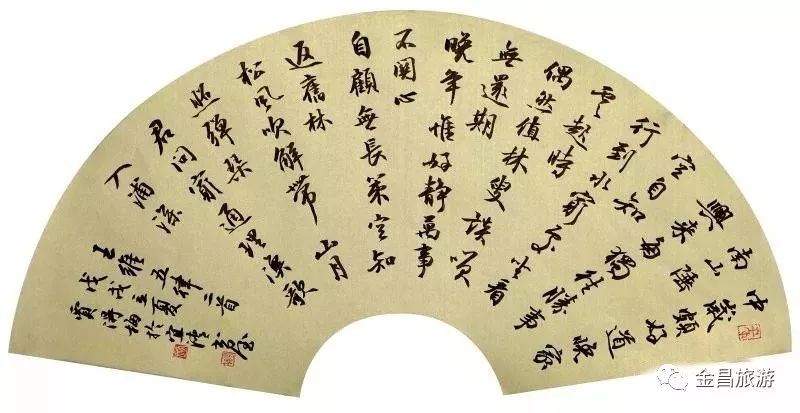 中歲頗好道晚家
南山陲
興來每獨往勝事
空自知
行到水窮處坐看
雲起時
偶然值林叟談笑
無還期
晚年惟好靜萬事
不關心
自顧無長策空知
返舊林
松風吹解帶山月
照彈琴
君問窮通理漁歌
入浦深
王維五律二首
戊戌立夏
於
金昌旅游